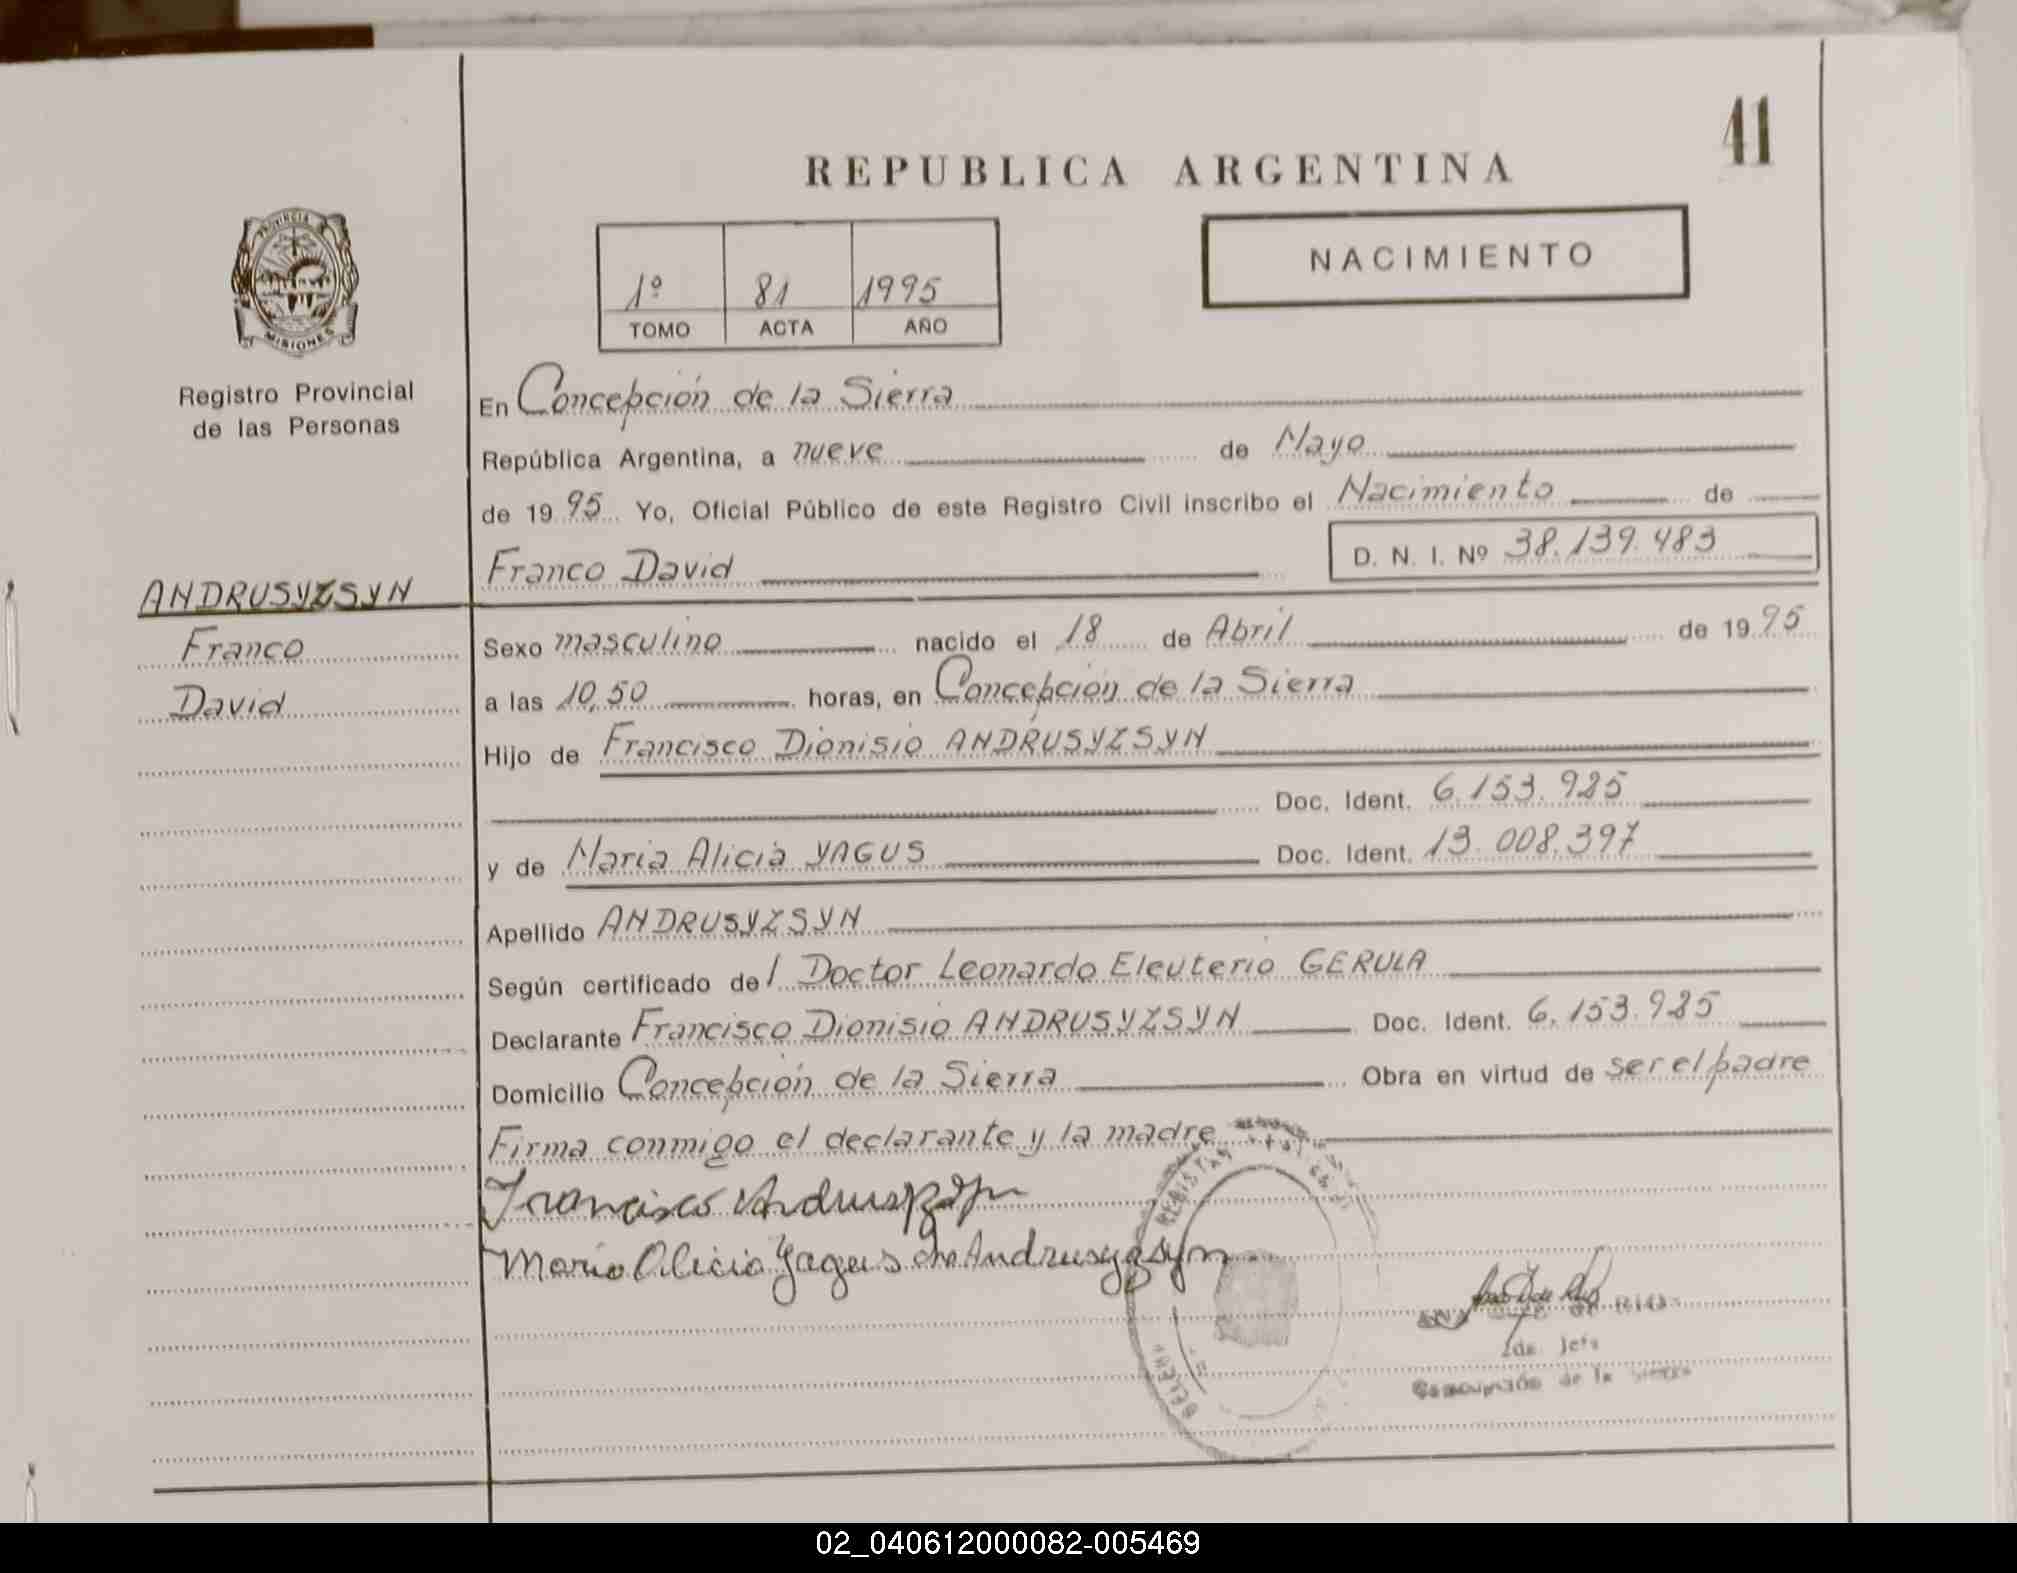 41
REPUBLICA ARGENTINA
PROVINCIA
MISIONES
NACIMIENTO
1º 81 1995
TOMO ACTA AÑO
Registro Provincial
de las Personas
En Concepción de la Sierra
República Argentina, a nueve de Mayo
de 19 95 Yo, Oficial Público de este Registro Civil inscribo el Nacimiento de
Franco David D. N. I. Nº 38.139.483
ANDRUSYZSYN
Franco
David
Sexo masculino nacido el 18 de Abril de 19 95
a las 10,50 horas, en Concepción de la Sierra
Hijo de Francisco Dionisio ANDRUSYZSYN
Doc. Ident. 6.153.925
y de Maria Alicia YAGUS Doc. Ident. 13.008.397
Apellido ANDRUSYZSYN
Según certificado de l Doctor Leonardo Eleuterio GERULA
Declarante Francisco Dionisio ANDRUSYZSYN Doc. Ident. 6.153.925
Domicilio Concepción de la Sierra Obra en virtud de ser el padre
Firma conmigo el declarante y la madre
Francisco
Maria Alicia Yagus de Andrusyzsyn
de la Sierra
02_040612000082-005469